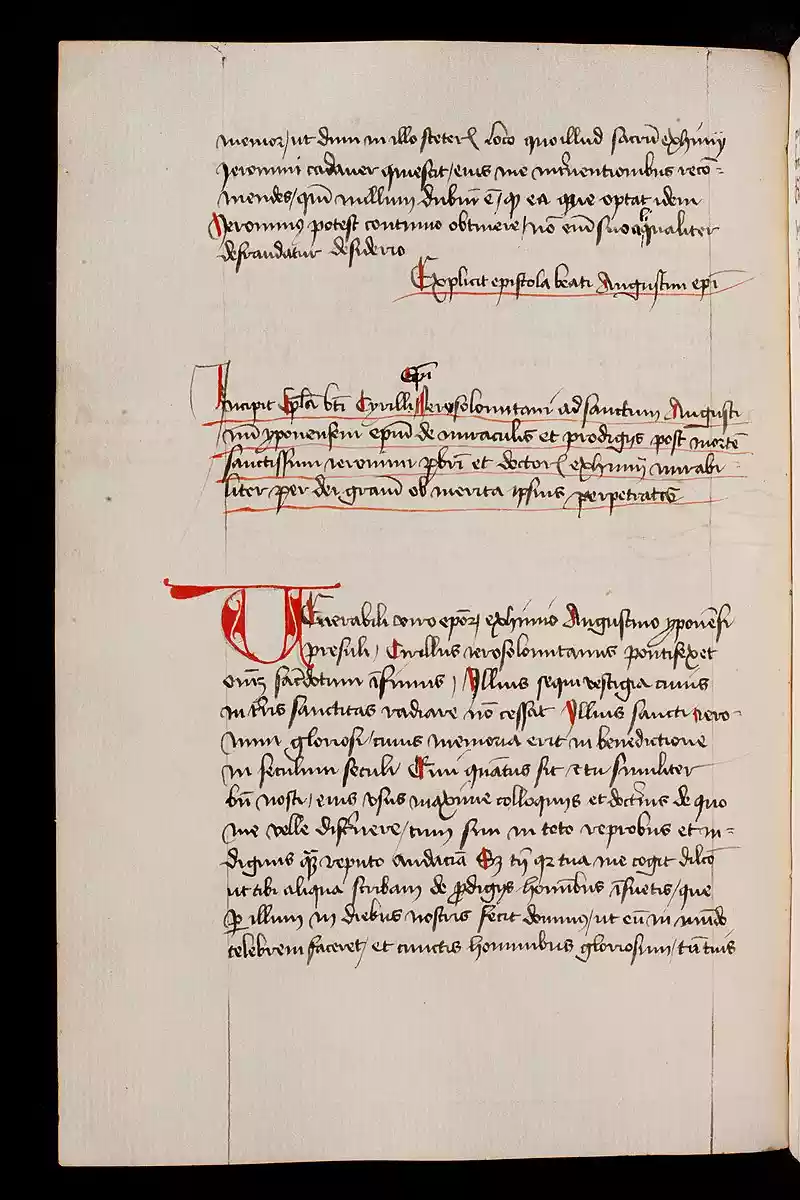 memor / ut dum in illo steteris loco quo illud sacrū eximij
Jeromini cadauer quiescit / eius me interuentionibus reco=
mendes / qm̄ nullum dubiū ē / qp ea que optat idem
Jeronimus potest continuo obtinere / nō em̄ suo aliqualiter
defraudatur desiderio
Explicit epistola beati Augustini epi
epi
Incipit epl̄a bti Cyrilli Jerosolomitani ad sanctum Augusti
num yponensem epm̄ de miraculis et prodigijs post mortē
sanctissimi ieronimi pbri et doctoris eximij mirabi
liter per dei graciā ob merita ipsius perpetratis
VEnerabili viro eporum eximio Augustino yponēsi
presuli / Cirillus ierosolomitanus pontifex et
omniū sacerdotum īfimus / Illius sequi vestigia cuius
in terris sanctitas radiare nō cessat Illius sancti iero-
nimi gloriosi / cuius memoria erit in benedictione
in seculum seculi Cui quātus sit et tu similiter
bn̄ nosti / eius vsus maxime colloquijs et doctrinis de quo
me velle disserere / cum sim in toto reprobus et in=
dignus quasi reputo audaciā Sz tn̄ qz tua me cogit dilcō
ut tibi aliqua scribam de prodigijs hominibus īsuetis / que
per illum in diebus nostris fecit dominus / ut eū in mūdo
celebrem faceret / et cunctis hominibus gloriosum / tn̄ tuis